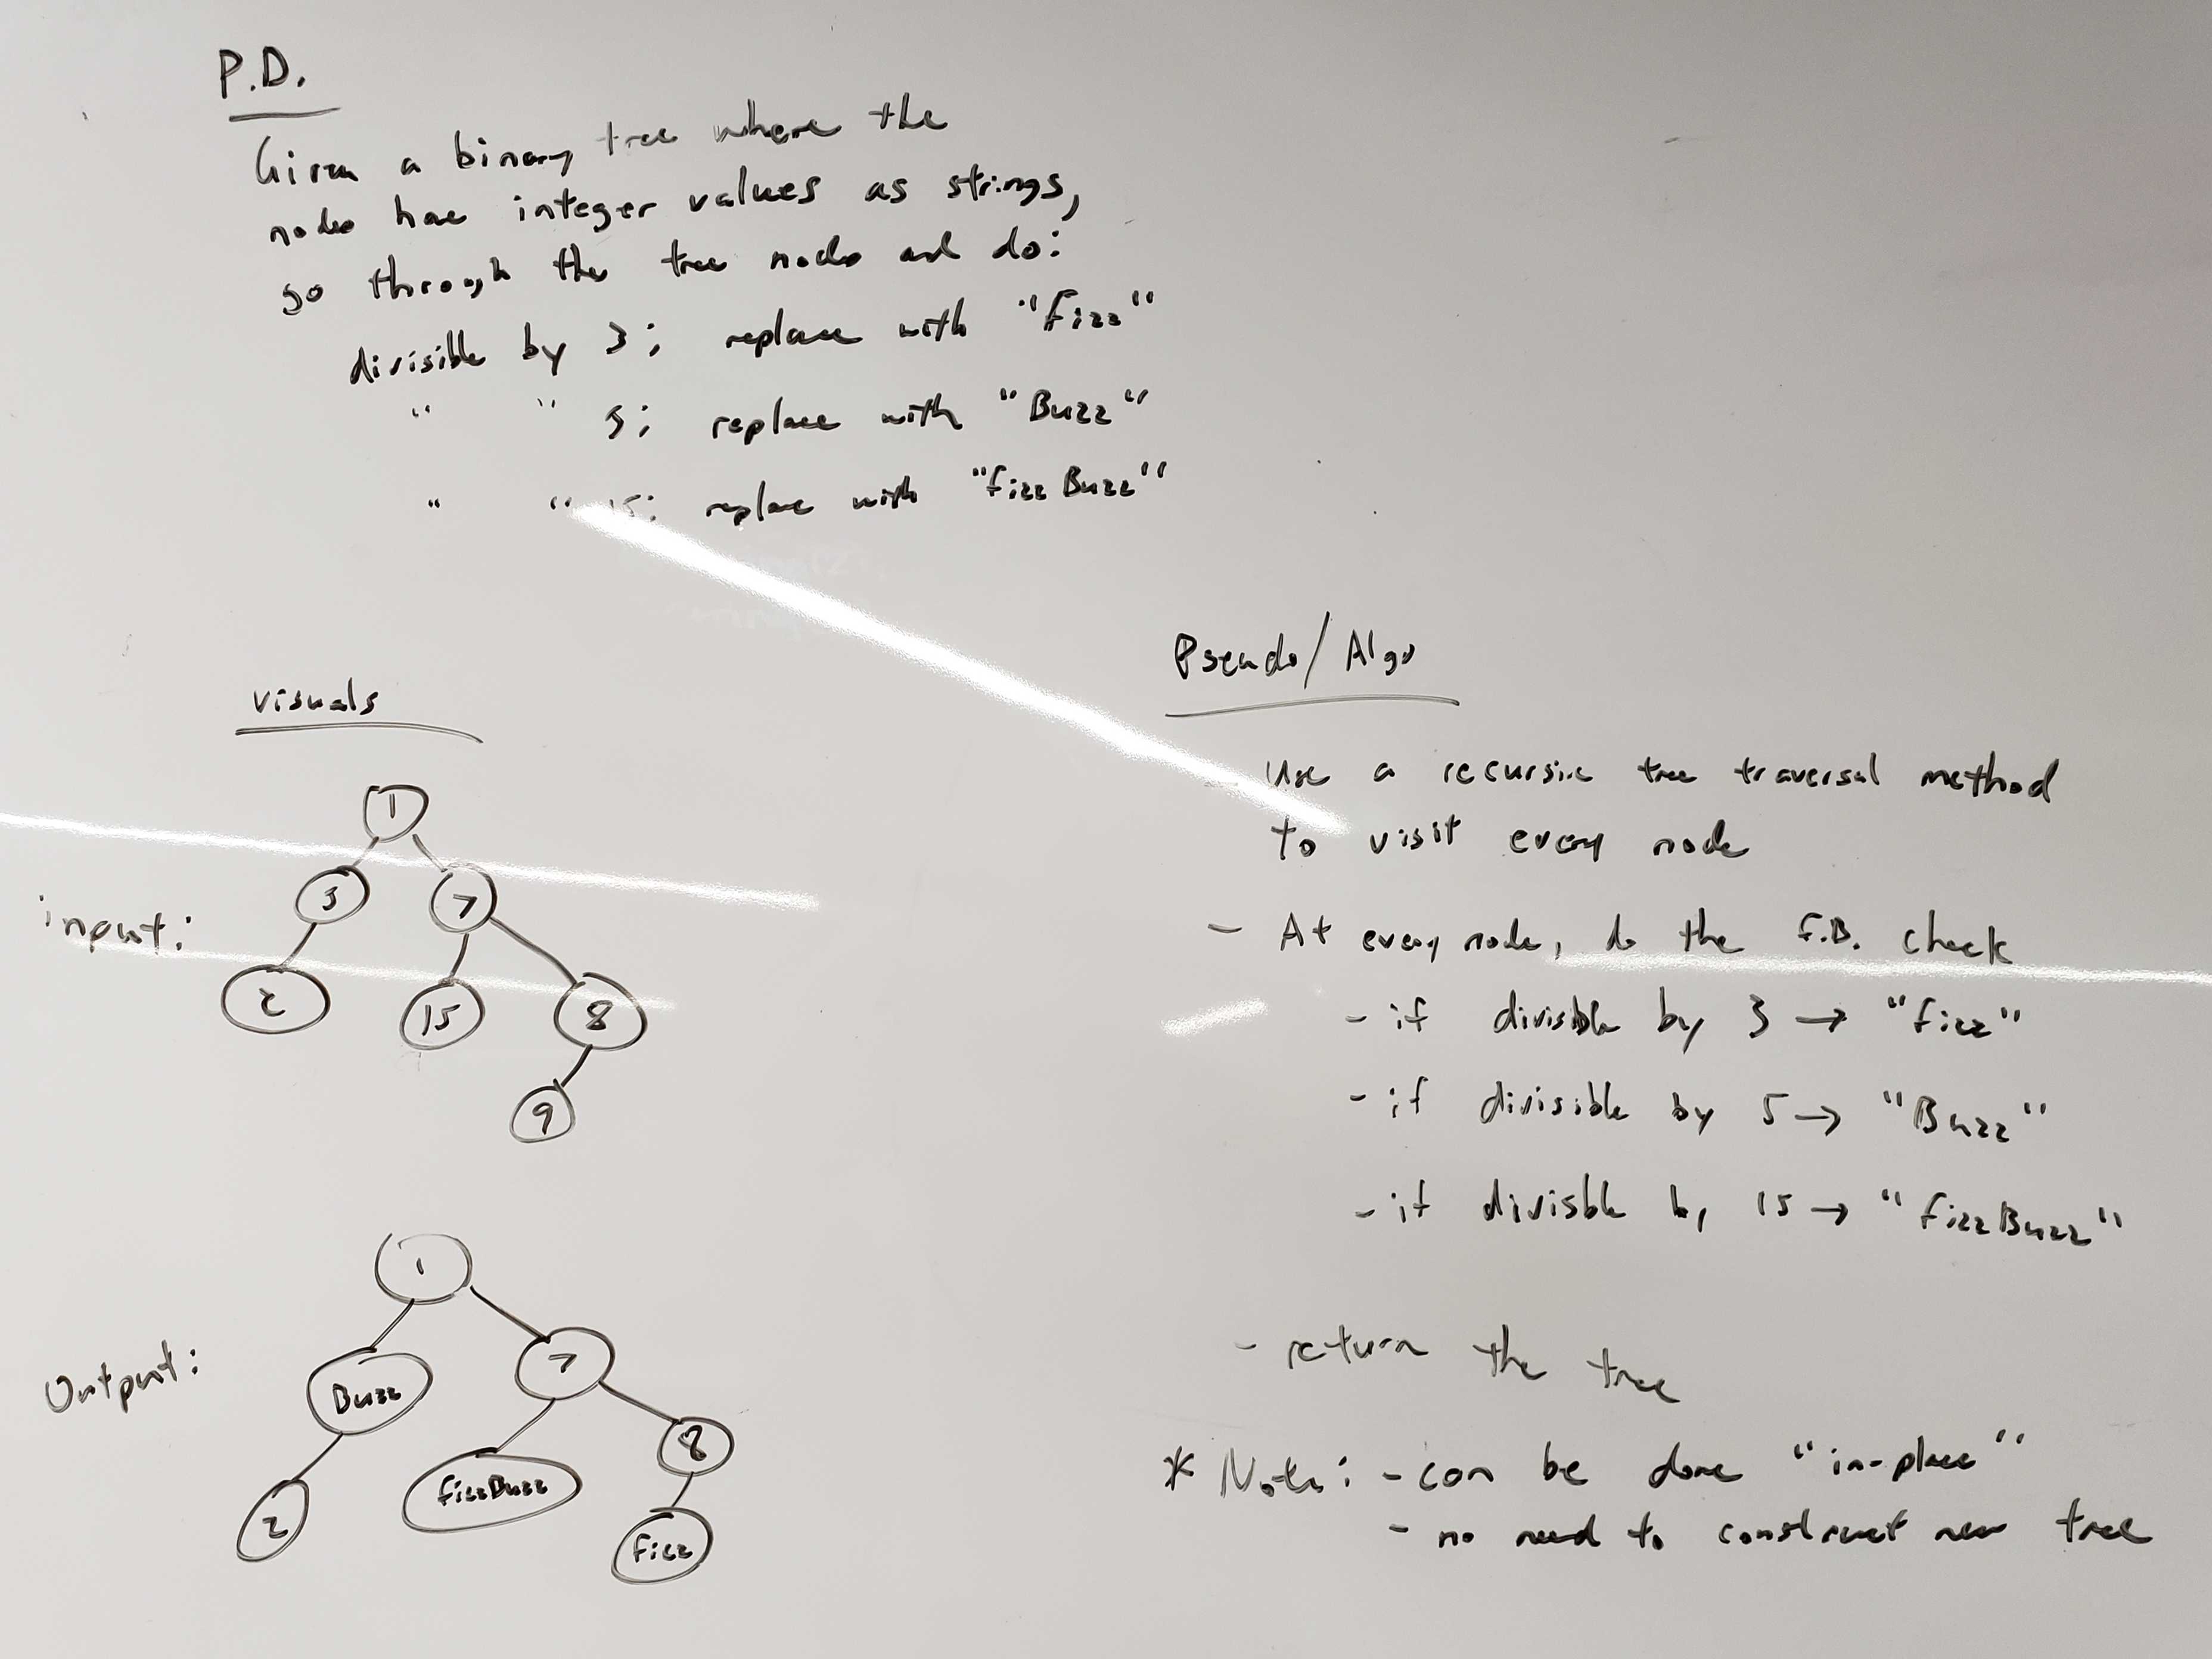 P.D.
Given a binary tree where the
nodes have integer values as strings,
go through the tree nodes and do:
divisible by 3; replace with "Fizz"
" " 5; replace with "Buzz"
" " 15; replace with "FizzBuzz"
visuals
input:
1
5 7
2 15 8
9
Output:
1
Buzz 7
2 FizzBuzz 8
Fizz
Pseudo/Algo
- Use a recursive tree traversal method
to visit every node
- At every node, do the F.B. check
- if divisible by 3 → "Fizz"
- if divisible by 5 → "Buzz"
- if divisble by 15 → "FizzBuzz"
- return the tree
* Note: - can be done "in-place"
- no need to construct new tree